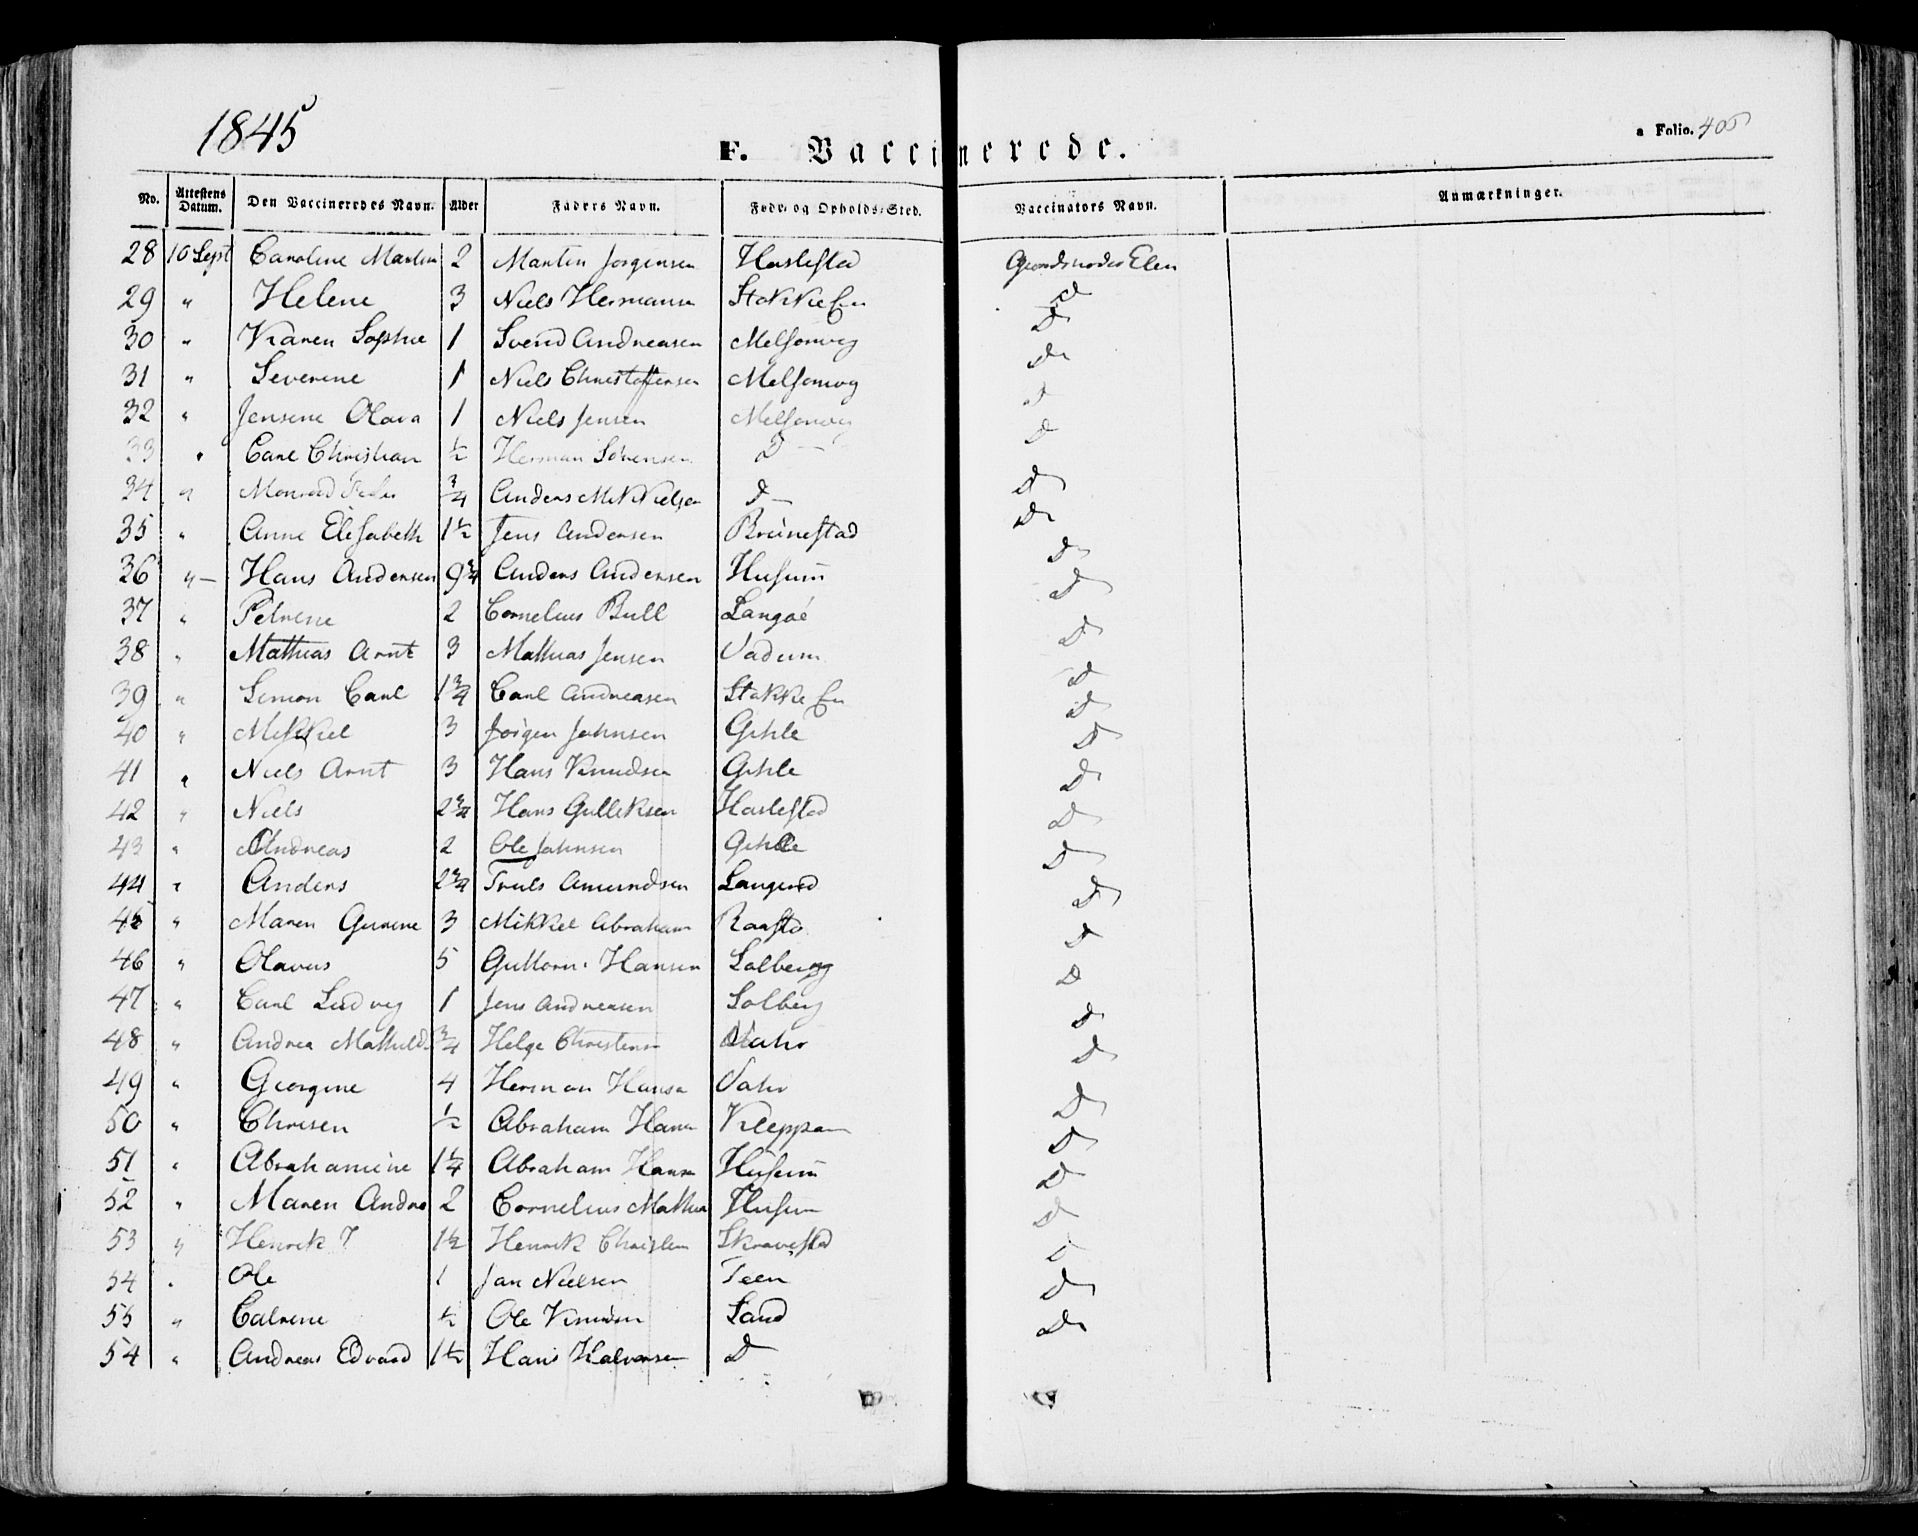 1845
a Folio. 405
F. Vaccinerede.
No. Attestens Datum. Den Vaccineredes Navn. Alder Faders Navn. Føde- og Opholds-Sted. Vaccinators Navn. Anmærkninger.
28 10 Sept Caroline Martin 2 Martin Jørgensen Haslestad
29 " Helene 3 Niels Hermansen Stokke Ør D
30 " Karen Sophie 1 Svend Andreasen Melsomvig D
31 " Severine 1 Niels Christoffersen Melsomvig D
32 " Jensine Olava 1 Niels Jensen Melsomvig D
33 " Carl Christian ½ Herman Sørensen D — D
34 " Peder ¾ Anders Mikkelsen D — D
35 " Anne Elisabeth 1½ Jens Andersen Brunestad D
36 " — Hans Andersen 9¾ Anders Andersen Husum D
37 " Petrine 2 Cornelius Bull Langøe D
38 " Mathias Arnt 3 Mathias Jensen Vadum D
39 " Simon Carl 1¾ Carl Andreasen Stokke D
40 " Mikkel 3 Jørgen Johnsen Gihle D
41 " Niels Arnt 3 Hans Knudsen Gihle D
42 " Niels 2¾ Hans Gulliksen Haslestad D
43 " Andreas 2 Ole Johnsen Gihle D
44 " Anders 2¾ Truls Amundsen Langerød D
45 " Maren Gurine 3 Mikkel Abraham Raasta D
46 " Olavus 5 Guttorm Hansen Solberg D
47 " Carl Ludvig 1 Jens Andreasen Solberg D
48 " Andrea Mathild ¾ Helge Christens D
49 " Georgine 4 Herman Hansen D
50 " Chrisen ½ Abraham Hansen Kleppan D
51 " Abrahamine 1¼ Abraham Hansen Husum D
52 " Maren Andre 2 Cornelius Mathias Husum D
53 " Henrik J 1½ Henrik Christen Skravestad D
54 " Ole 1 Jan Nielsen Teen D
55 " Catrine ½ Ole Knudsen Sand D
54 " Andreas Edvard 1½ Hans Halvorsen D D